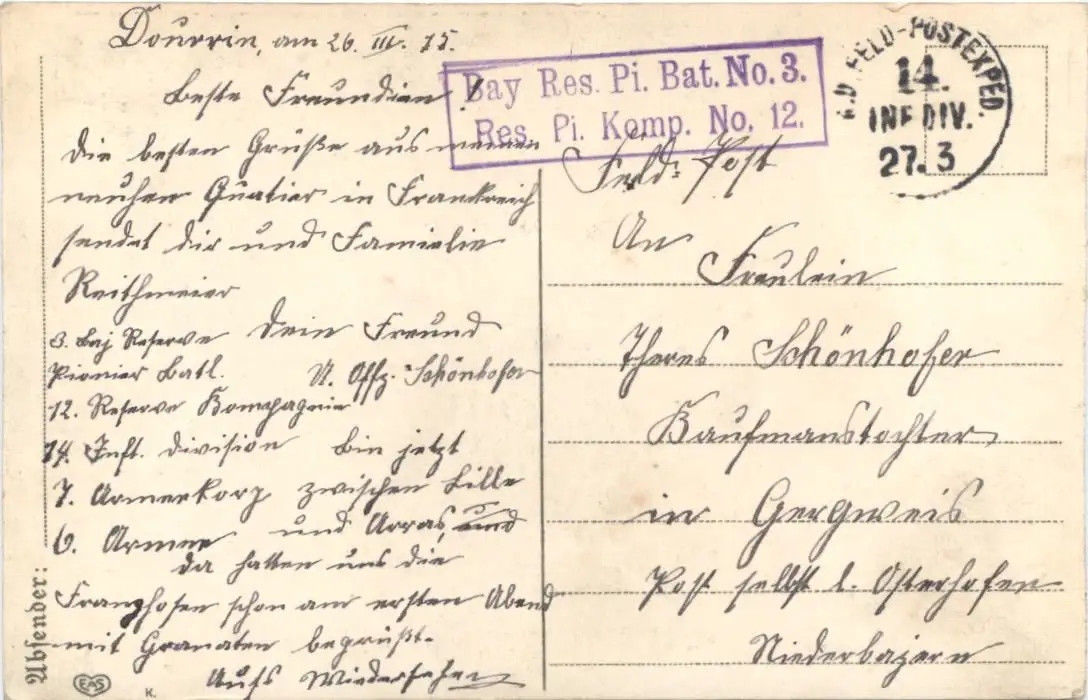 Dourrin, am 26. III. 15.
Beste Freundien!
die besten Grüße aus meinen
neuhen Quatier in Frankreich
sendet dir und Familie
Reithmeier
dein Freund
U. Offz. Schönhofer
3. Baj Reserve
Pionier Batl.
12. Reserve Kompagnie
14. Inft. division
7. Armeekorp
6. Armee
bin jetzt
zwischen Lille
und Arras, und
da hatten uns die
Franzhosen schon am ersten Abend
mit Granaten begrüßt.
Aufs Wiedersehen
Absender:
EAS
K.
Bay Res. Pi. Bat. No. 3.
Res. Pi. Komp. No. 12.
K.D. FELD-POSTEXPED.
14.
INF DIV.
27.3
Feld-Post
An
Fräulein
Theres Schönhofer
Kaufmanstochter
in Gergweis
Post selbst b. Osterhofen
Niederbayern